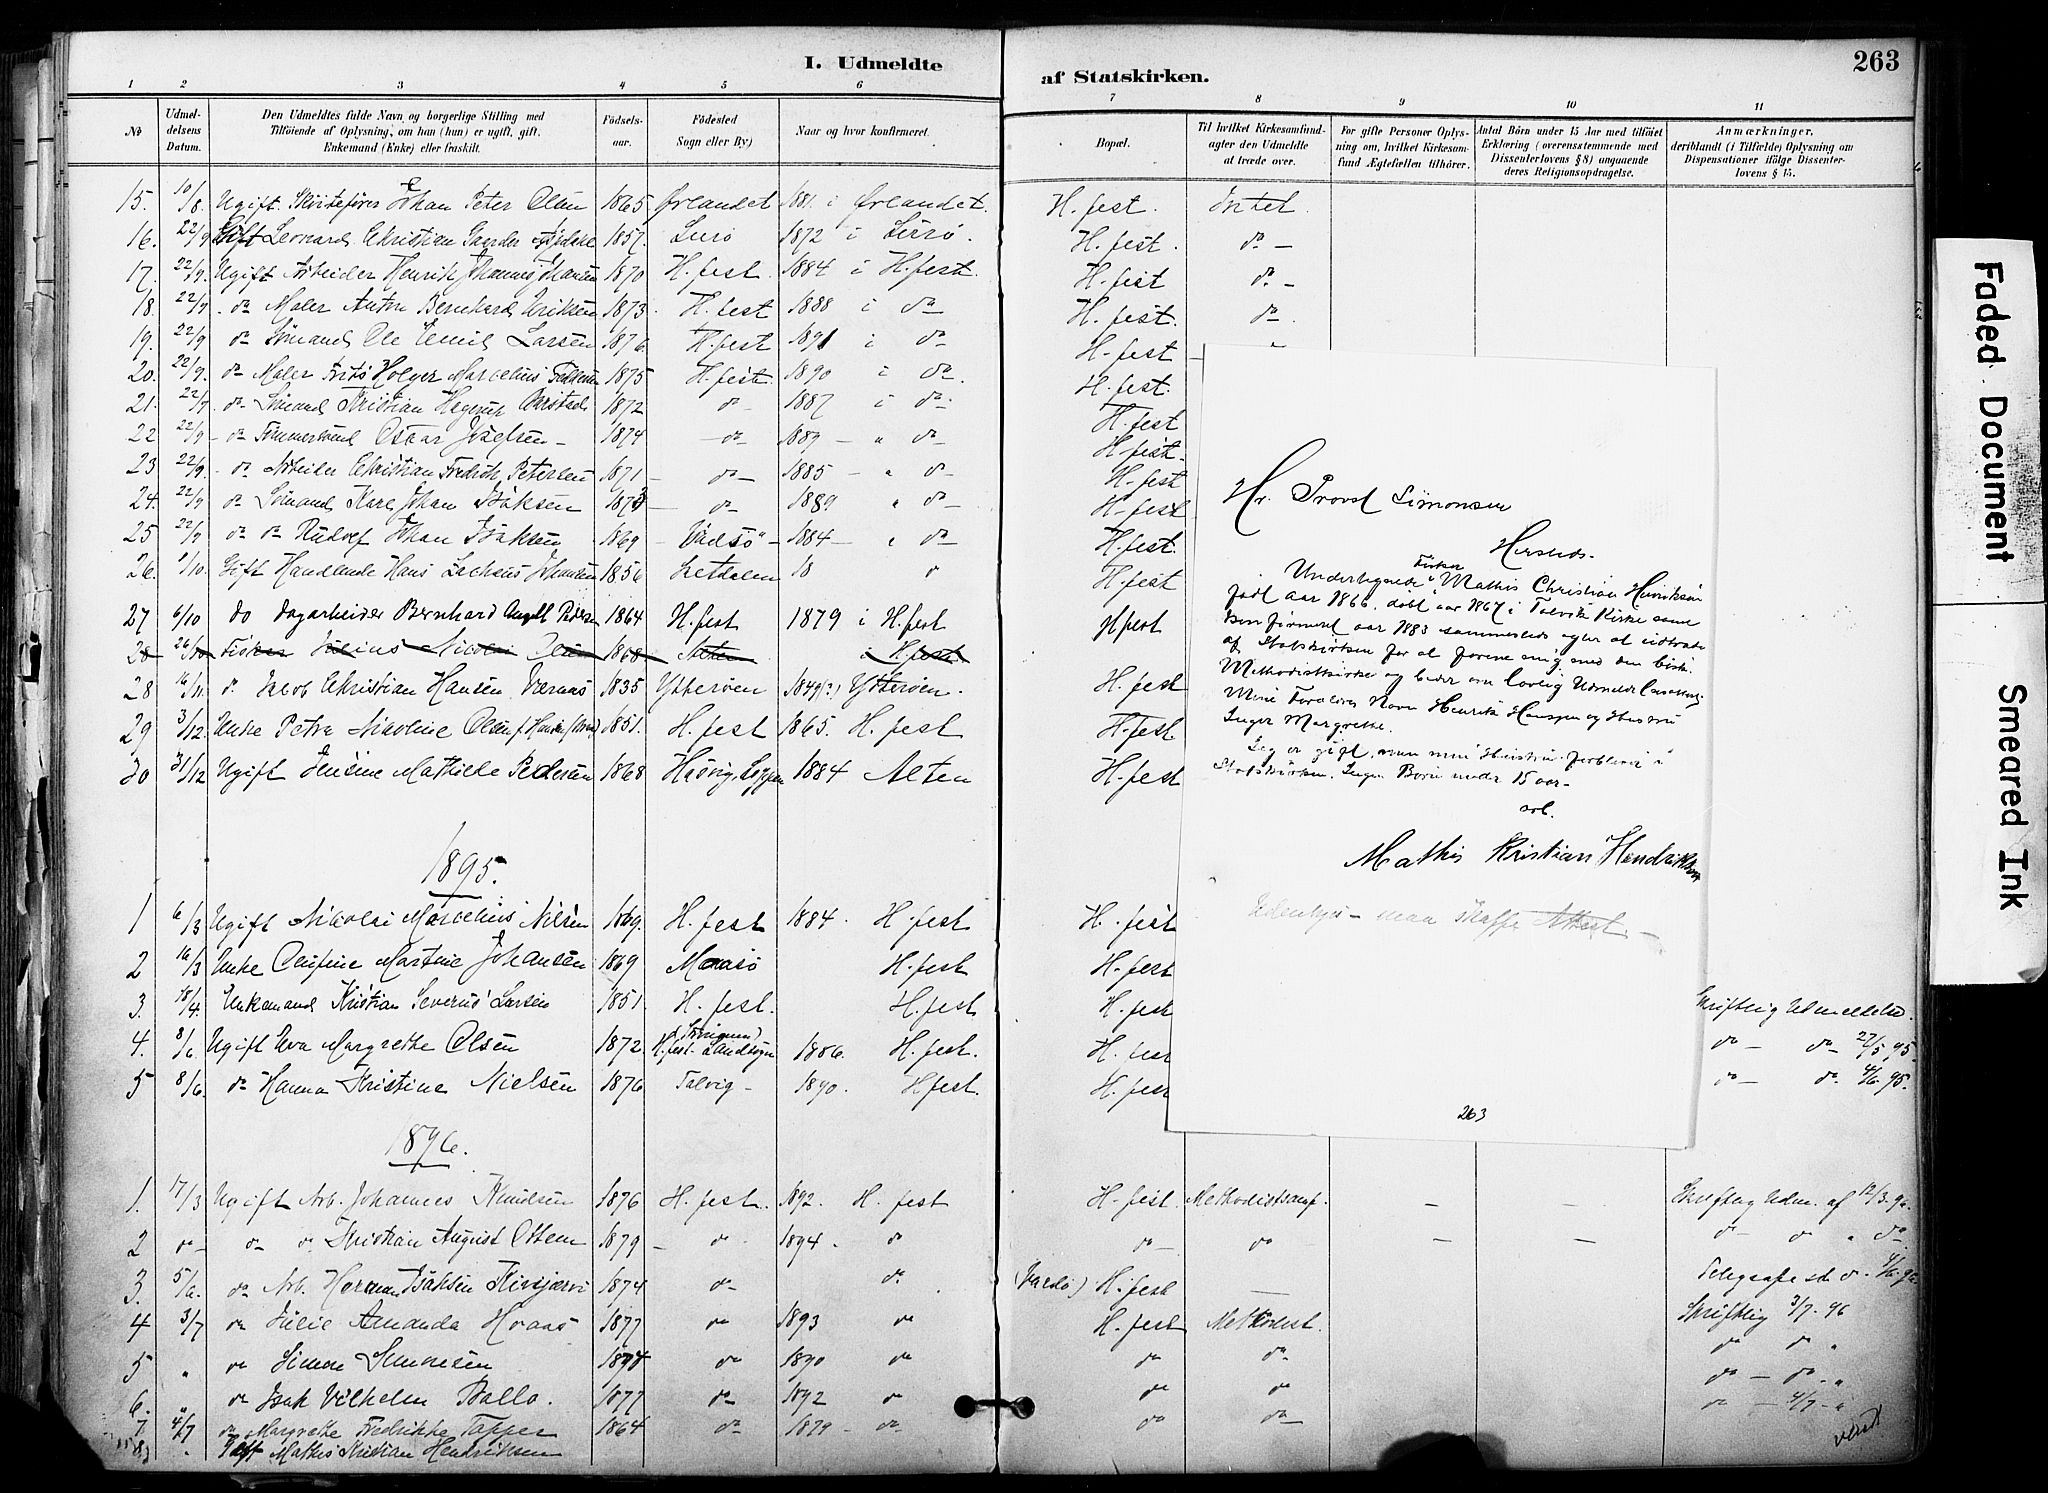 263
I. Udmeldte af Statskirken.
1 2 3 4 5 6 7 8 9 10 11
No
Udmel-
delsens
Datum.
Den Udmeldtes fulde Navn og borgerlige Stilling med
Tilføiende af Oplysning, om han (hun) er ugift, gift.
Enkemand (Enke) eller fraskilt.
Fødsels-
aar.
Fødested
Sogn eller By)
Naar og hvor konfirmeret.
Bopæl.
Til hvilket Kirkesamfund-
agter den Udmeldte
at træde over.
For gifte Personer Oplys-
ning om, hvilket Kirkesam-
fund Ægtefællen tilhører.
Antal Børn under 15 Aar med tilføiet
Erklæring (overensstemmende med
Dissenterlovens § 8) angaaende
deres Religionsopdragelse.
Anmærkninger,
deriblandt (i Tilfælde) Oplysning om
Dispensationer ifølge Dissenter-
lovens § 15.
15. 10/8. Ugift Johan Peter Olsen 1865 Ørlandet 1881 i Ørlandet. H. fest. Intet.
16. 22/9 Gift Leonard Christian 1857. Lurø 1872 i Lurø. H. fest. do -
17. 22/9. Ugift Arbeider Henrik Johannes Johansen 1870 H. fest 1884 i H. fest. H. fest do. -
18. 22/9. do Maler Anton Bernhard Eriksen 1873. H. fest 1888 i do H. fest. do.
19. 22/9 do Sømand Ole Emil Larsen 1876. H. fest 1891 i do H. fest
20. 22/9. do Maler Frits Holger Marcelius 1875 H. fest. 1890 i do. H. fest.
21. 22/9. do. Sømand Kristian Hagerup 1872 do 1887 i do. H. fest
22 22/9 - do Tømmermand Oscar 1874 - do 1889 - " do H. fest.
23 22/9. - do Arbeider Christian Fredrik Petersen 1871 - do - 1885 - " do - H. fest
24. 22/9 do Sømand Karl Johan Isaksen 1873 - do - 1889 " do - H. fest
25 22/9 do do Rudolf Johan Isaksen 1869 - Vadsø" - 1884 - " do - H. fest.
26. 1/10. Gift Handlende Hans Zachæus Johansen 1856 18 " H. fest
27 6/10 do dagarbeider Bernhard Angell 1864 H. fest 1879 i H. fest H fest
28 26/10 Fisker Julius Nicolai Olsen 1868 Alten i H. fest
28 16/11. do. Jacob Christian Hansen Værnæs 1835 Ytterøen 1849(?) Ytterøen. H. fest
29 3/12. Enke Petra Nicoline Olsen 1851. H. fest 1865. H. fest H. fest.
30 31/12 Ugift Jensine Mathilde Pedersen 1868 Hasvig, Loppen 1884 Alten H. fest
1895.
1 6/3 Ugift Nikolai Marcelius Nilsen 1869. H. fest 1884. H. fest H. fest
2 16/3 Enke Martine Johansen 1869 Maasø H. fest H. fest
3. 18/4. Enkemand Kristian Severus Larsen 1851. H. fest. H. fest H. fest Skriftlig Udmeldelse.
4. 8/6. Ugift Eva Margrethe Olsen 1872 H. fest Landsogn 1886. H. fest. H. fest do - do - 27/5 95.
5 8/6. do Hanna Kristine Nielsen 1876 Talvig - 1890. H fest. H. fest do - do. 4/6. 95.
1896.
1. 17/3 Ugift Arb. Johannes Knudsen 1876 H. fest. 1892. H. fest H. fest. Methodistsamf. - - Skriftlig Udm. af 12/3. 96.
2 do - do - do Kristian August Ottem 1879 - do. 1894. do do - do - - do - do " do
3. 5/6. do Arb. Herman Isaksen Kivijærvi 1874 do - do. (Vardø) H. fest -
4 3/7 do Julie Amanda Hraas 1877 do 1893 do H. fest Methodist. Skriftlig 3/7. 96
5 " do Simon Simonsen 1874 do 1890 do do do - do do "
6. " do Isak Vilhelm Ballo. 1877 do - 1892 do do do do - do - "
7. 4/7 do Margrethe Fredrikke Tapper 1864 do - 1879 - do - do do - do - 4/7 - "
8 " Gift Mathis Kristian Hendriksen
vend
Hr. Provst Simonsen
Hersteds.
Undertegnede Fisker Mathis Christian Henriksen
født aar 1866. døbt aar 1867 i Talvik Kirke samt
konfirmert aar 1883 sammesteds agter at udtræde
af Statskirken for at forene mig med den bisk.
Methodistkirke og beder om lovlig
Mine Forældres Navn Henrik Hanssen og Hustru
Inger Margrethe.
Jeg er gift, men min Hustru forbliver i
Statskirken. Ingen Børn under 15 aar -
ærb.
Mathis Kristian Hendriksen
maa skaffe Attest -
263
Faded Document
Smeared Ink